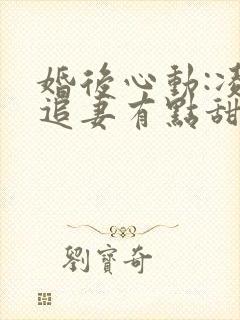 婚後心動:凌
追妻有點甜
劉寶奇